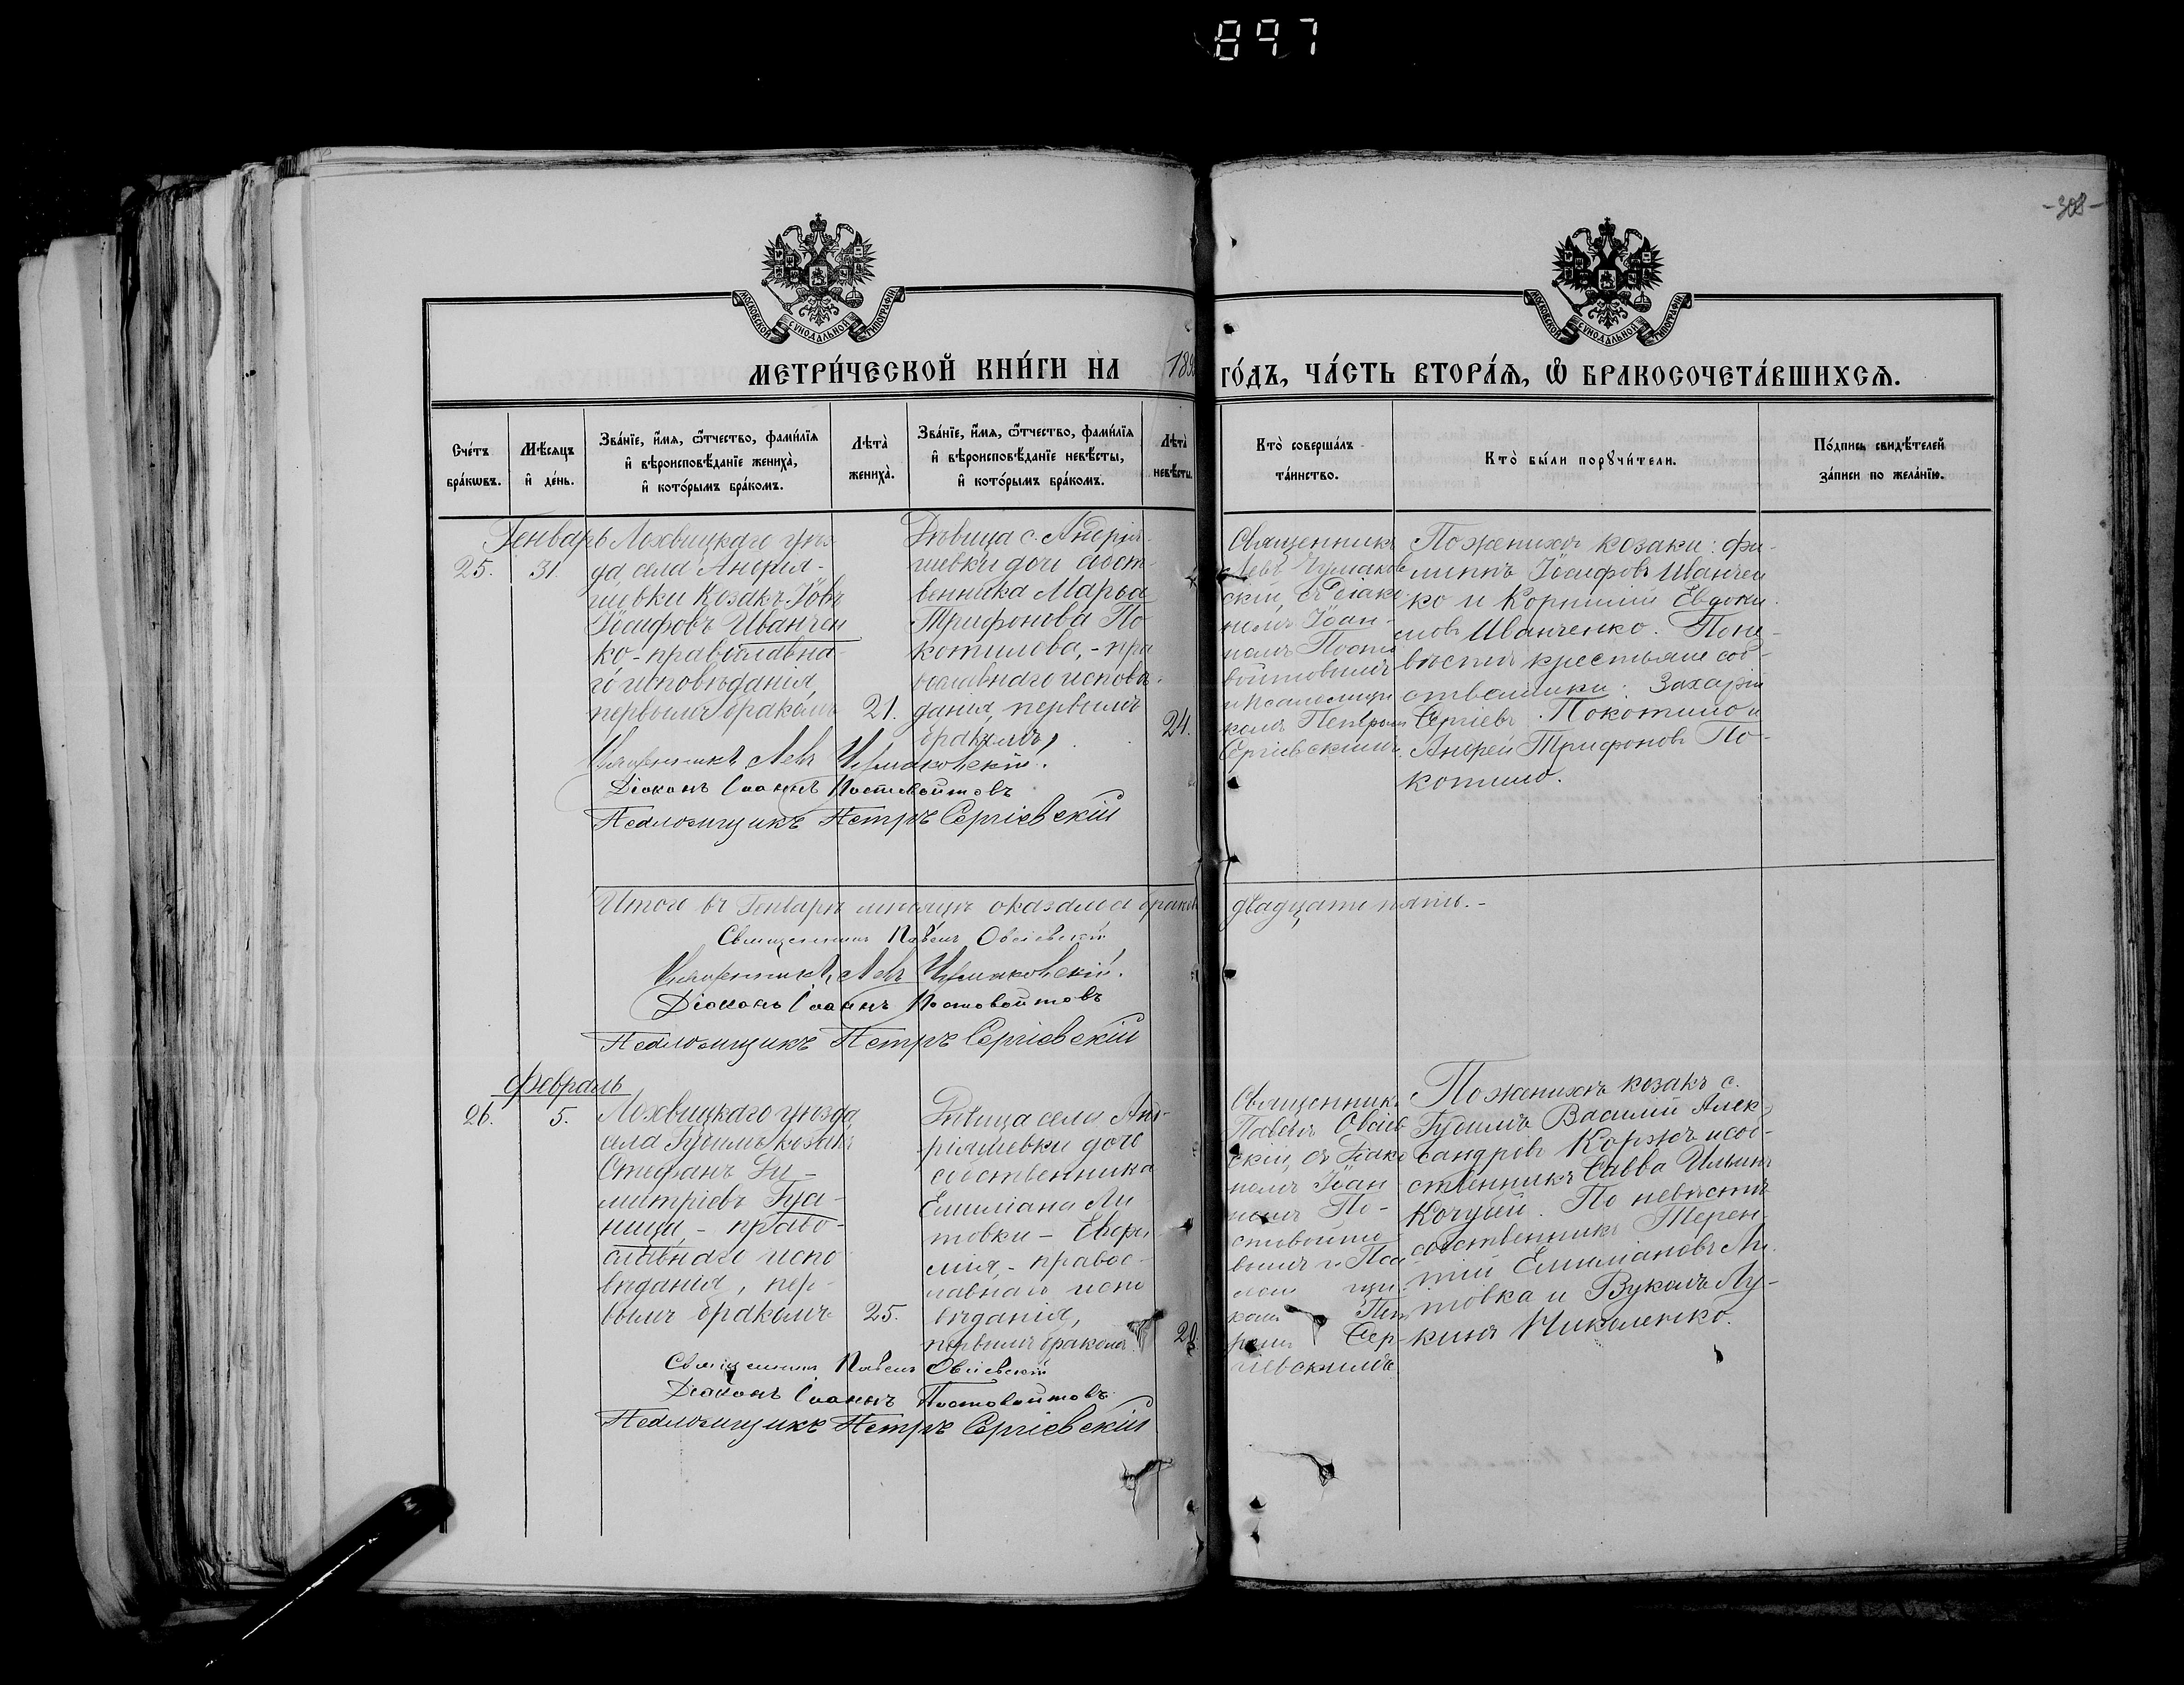 897
-308-
МОСКОВСКОЙ СѴНОДАЛЬНОЙ ТИПОГРАФІИ
МОСКОВСКОЙ СѴНОДАЛЬНОЙ ТИПОГРАФІИ
МЕТРИ́ЧЕСКОЙ КНИ́ГИ НА 189
ГО́ДЪ, ЧА́СТЬ ВТОРА́Ѧ, Ѽ БРАКОСОЧЕТА́ВШИХСѦ.
Сче́тъ
бра́кѡвъ.
Мѣ́сѧцъ
и҆ де́нь.
Зва́нїе, и҆́мѧ, ѻ҆́тчество, фами́лїѧ
и҆ вѣроисповѣ́данїе жениха̀,
и҆ кото́рымъ бра́комъ.
Лѣта̀
жениха̀.
Зва́нїе, и҆́мѧ, ѻ҆́тчество, фами́лїѧ
и҆ вѣроисповѣ́данїе невѣ́сты,
и҆ кото́рымъ бра́комъ.
Лѣта̀
невѣ́сты.
Кто̀ соверша́лъ
та́инство.
Кто̀ бы́ли порꙋчи́тели.
По́дпись свидѣ́телей
за́писи по жела́нїю.
Генварь
25.
31.
Лохвицкаго уѣз-
да села Андрія-
шевки Козакъ Іовъ
Іосифовъ Иванчен
ко - православна-
го исповѣданія,
первымъ бракомъ
21.
Дѣвица с. Андрія-
шевки дочь собст-
венника Марѳа
Трифонова По
котилова, - пра
вославнаго исповѣ-
данія, первымъ
бракомъ,
24.
Священникъ
Левъ Чумаков
скій, съ діако-
номъ Іоан-
номъ Посто
войтовымъ
и псаломщи
комъ Петромъ
Сергіевскимъ.
По женихѣ козаки: Фи-
липпъ Іосифовъ Иванчен
ко и Корнилій Евдоки-
мовъ Иванченко. По не-
вѣстѣ крестьяне соб-
ственники: Захарій
Сергіевъ Покотило и
Андрей Трифоновъ По-
котило.
Священникъ Левъ Чумаковскій.
Діаконъ Іоаннъ Постовойтовъ
Псаломщикъ Петръ Сергіевскій
Итого въ Генварѣ мѣсяцѣ оказалось браковъ двадцать пять. -
Священникъ Павелъ Овсіевскій
Священникъ Левъ Чумаковскій.
Діаконъ Іоаннъ Постовойтовъ
Псаломщикъ Петръ Сергіевскій
Февраль
26.
5.
Лохвицкаго уѣзда,
села Гудимъ козакъ
Стефанъ Ди-
митріевъ
право-
славнаго испо
вѣданія, пер-
вымъ бракомъ
25.
Дѣвица села Анд-
ріяшевки дочь
собственника
Емиліана Ли
товки - Евфи
мія, - правос-
лавнаго испо
вѣданія,
первымъ бракомъ.
Священникъ
Павелъ Овсіев
скій, съ діако
номъ Іоан
номъ По-
стовойто
вымъ и Пса
лом щи-
комъ Пет
ромъ Сер-
гіевскимъ
По женихѣ козакъ с.
Гудимъ Василій Алек-
сандровъ Коржъ и соб-
ственникъ Савва Ильинъ
Кочубей. По невѣстѣ
собственники Терен-
тій Емиліановъ Ли-
товка и Вуколъ Лу-
кинъ Николенко.
Священникъ Павелъ Овсіевскій
Діаконъ Іоаннъ Постовойтовъ
Псаломщикъ Петръ Сергіевскій